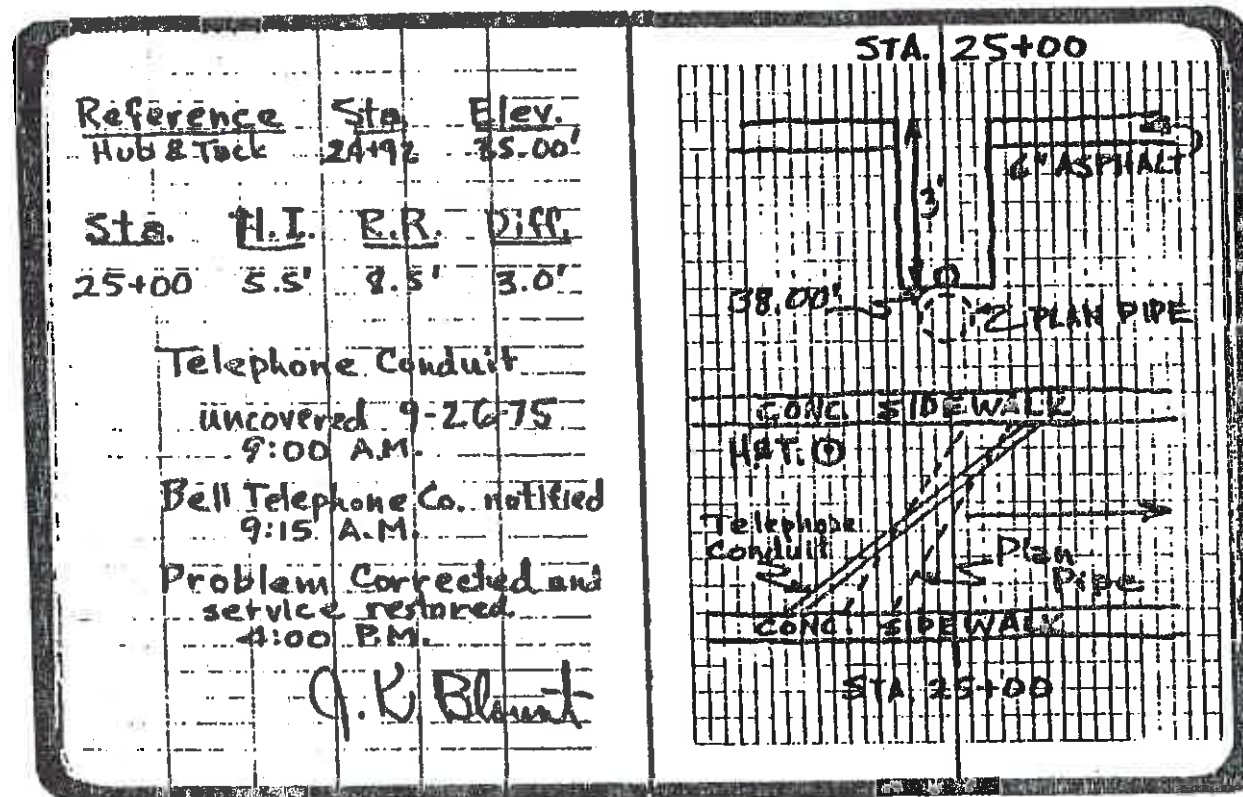 Reference Sta. Elev.
Hub & Tack 24+92 35.00'
Sta. H.I. R.R. Diff.
25+00 5.5' 8.5' 3.0'
Telephone Conduit
uncovered 9-26-75
9:00 A.M.
Bell Telephone Co. notified
9:15 A.M.
Problem Corrected and
service restored.
4:00 P.M.
J. K. Blount
STA. 25+00
6" ASPHALT
3'
38.00'
PLAN PIPE
CONC. SIDEWALK
H&T.
Telephone
Conduit
Plan
Pipe
CONC. SIDEWALK
STA 25+00